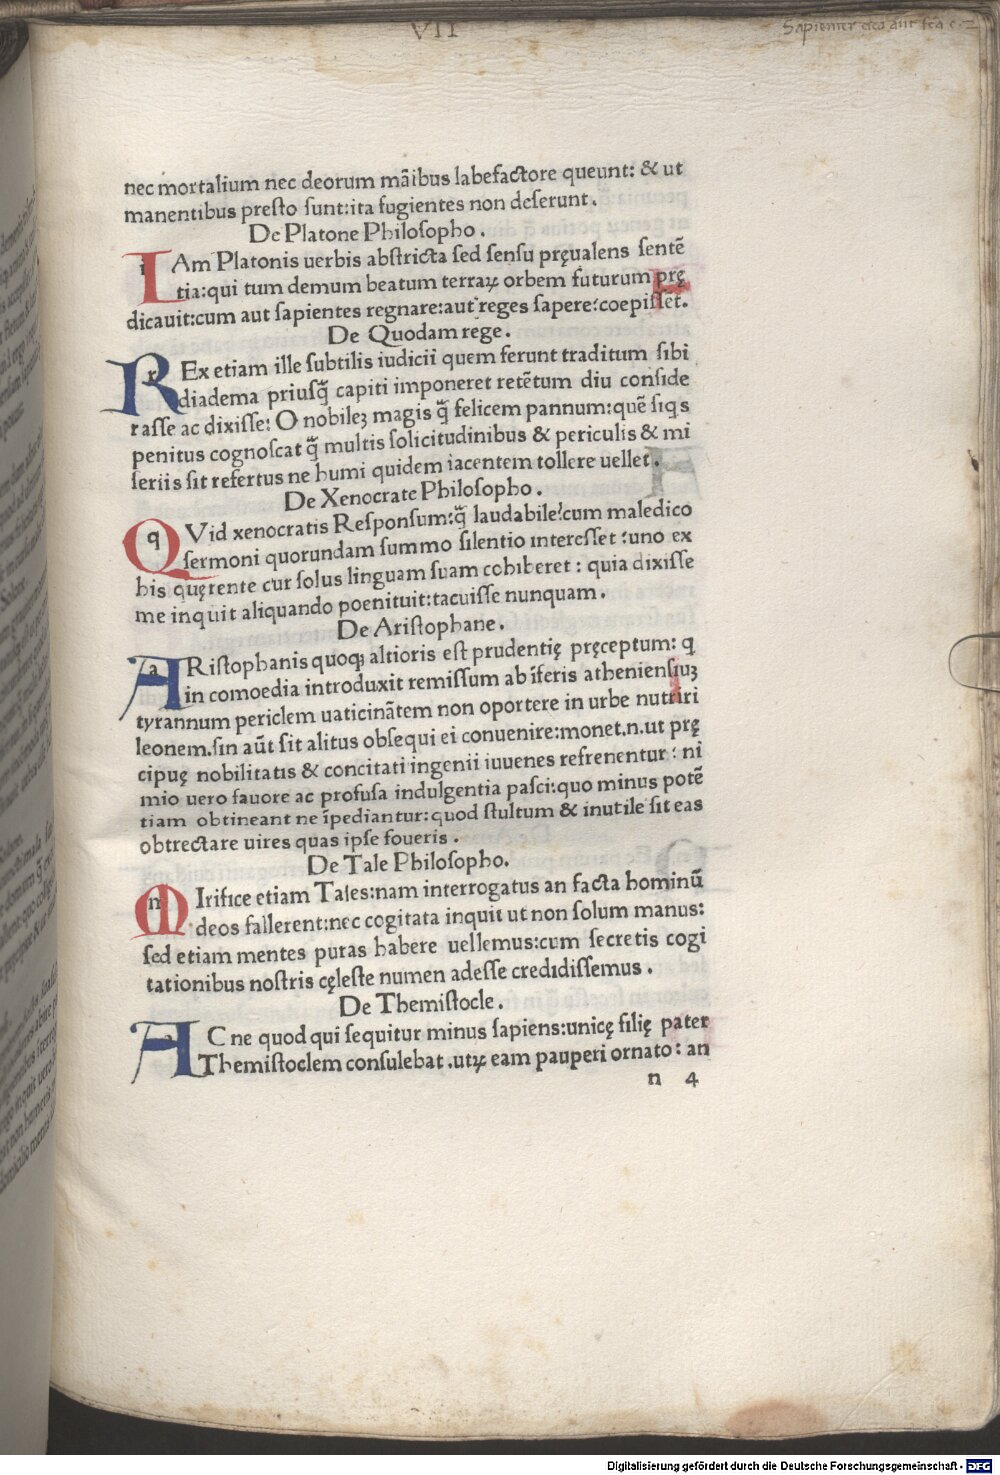 VII
Sapienter
nec mortalium nec deorum mãibus labefactore queunt: & ut
manentibus presto sunt:ita fugientes non deserunt.
De Platone Philosopho.
IAm Platonis uerbis abstricta sed sensu pręualens sentẽ
tia:qui tum demum beatum terraꝝ orbem futurum prę
dicauit:cum aut sapientes regnare:aut reges sapere:coepisset.
De Quodam rege.
REx etiam ille subtilis iudicii quem ferunt traditum sibi
diadema priusq̃ capiti imponeret retẽtum diu conside
rasse ac dixisse: O nobileꝫ magis q̃ felicem pannum:quẽ siqs
penitus cognoscat q̃ multis solicitudinibus & periculis & mi
seriis sit refertus ne humi quidem iacentem tollere uellet.
De Xenocrate Philosopho.
QVid xenocratis Responsum:q̃ laudabile?cum maledico
sermoni quorundam summo silentio interesset:uno ex
his quęrente cur solus linguam suam cohiberet: quia dixisse
me inquit aliquando poenituit:tacuisse nunquam.
De Aristophane.
ARistophanis quoqꝫ altioris est prudentię pręceptum: q
in comoedia introduxit remissum ab ĩferis atheniensiuꝫ
tyrannum periclem uaticinãtem non oportere in urbe nutriri
leonem.sin aũt sit alitus obsequi ei conuenire:monet.n.ut prę
cipuę nobilitatis & concitati ingenii iuuenes refrenentur: ni
mio uero fauore ac profusa indulgentia pasci:quo minus potẽ
tiam obtineant ne ĩpediantur:quod stultum & inutile sit eas
obtrectare uires quas ipse foueris.
De Tale Philosopho.
MIrifice etiam Tales:nam interrogatus an facta hominũ
deos fallerent:nec cogitata inquit ut non solum manus:
sed etiam mentes puras habere uellemus:cum secretis cogi
tationibus nostris cęleste numen adesse credidissemus.
De Themistocle.
AC ne quod qui sequitur minus sapiens:unicę filię pater
Themistoclem consulebat.utꝝ eam pauperi ornato: an
n 4
Digitalisierung gefördert durch die Deutsche Forschungsgemeinschaft - DFG